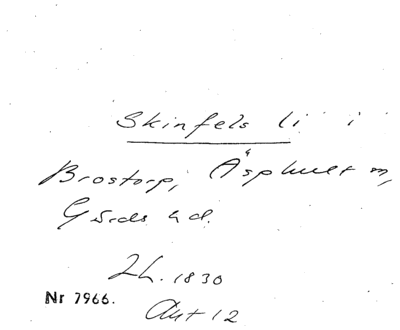 Skinfels li i
Brostorp, Äsphult sn,
Gärds hd.
Lh. 1830
Nr 7966.
Akt 12